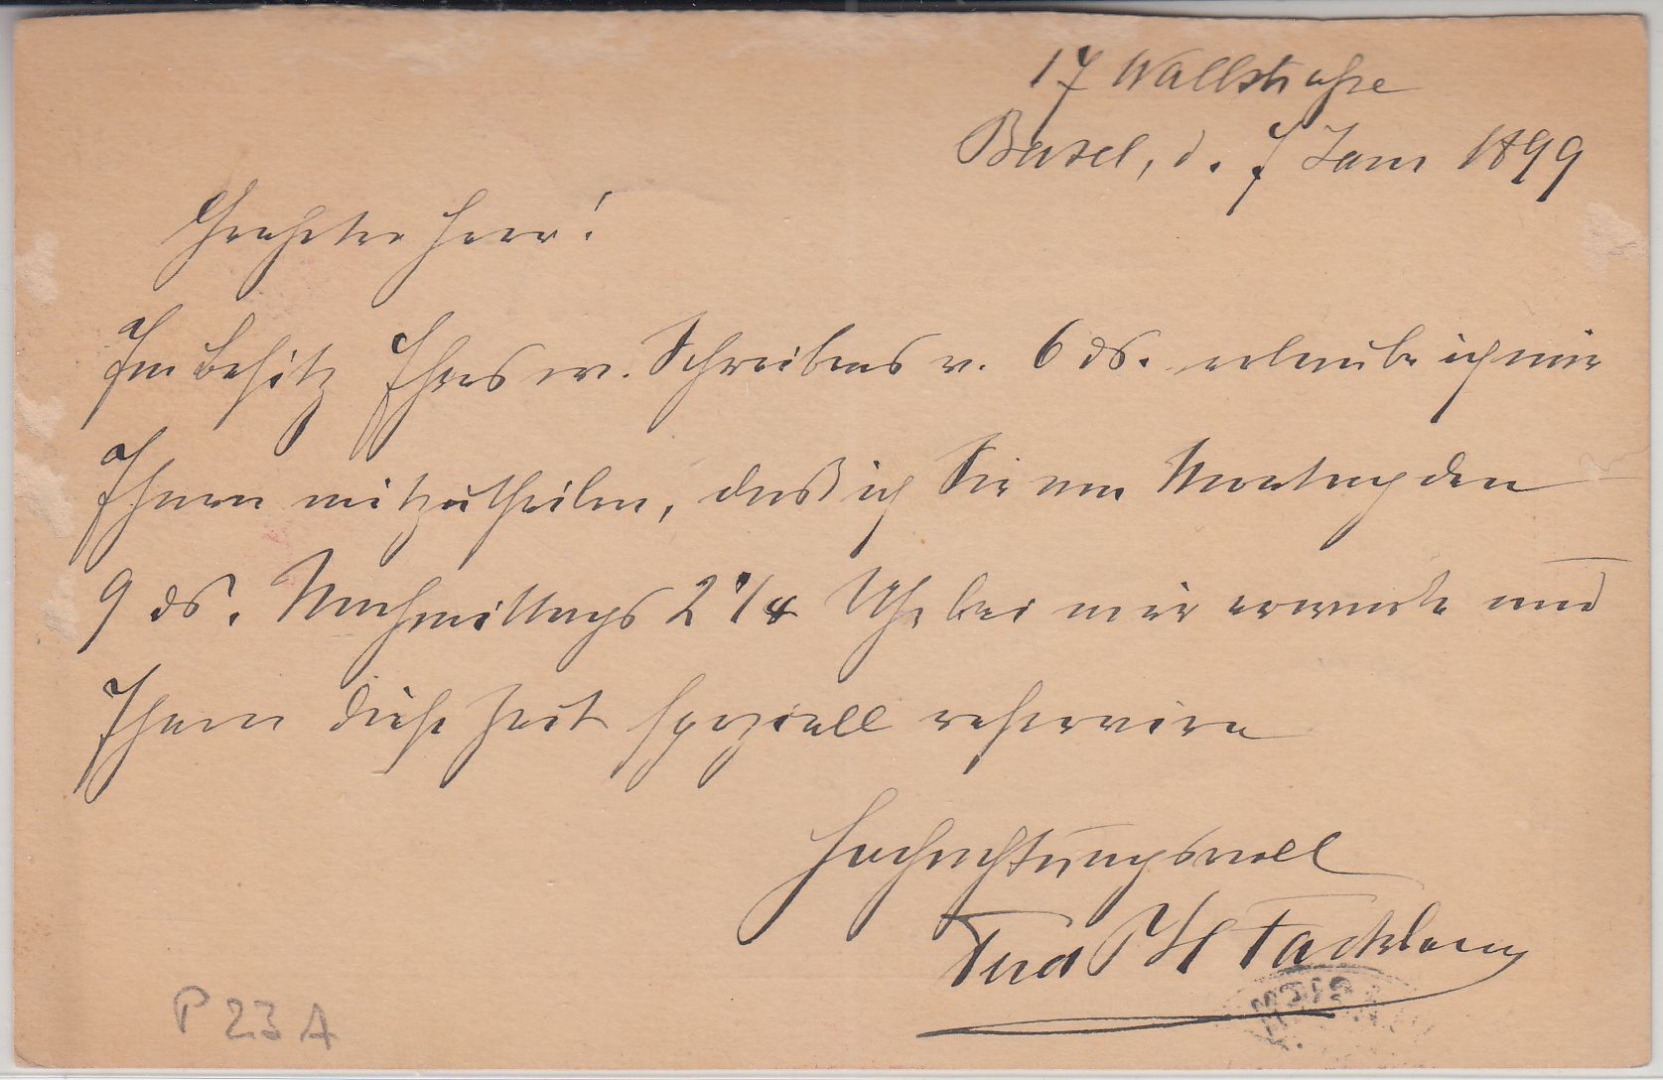 17 Wallstraße
Basel, d. 7 Janr 1899
Geehrter Herr!
Im Besitz Ihres w. Schreibens v. 6 ds. erlaube ich mir
Ihnen mitzutheilen, daß ich Sie am Montag den
9 ds. Nachmittags 2 1/4 Uhr bei mir erwarte und
Ihnen diese Zeit speziell reservire
Hochachtungsvoll
P 23 A